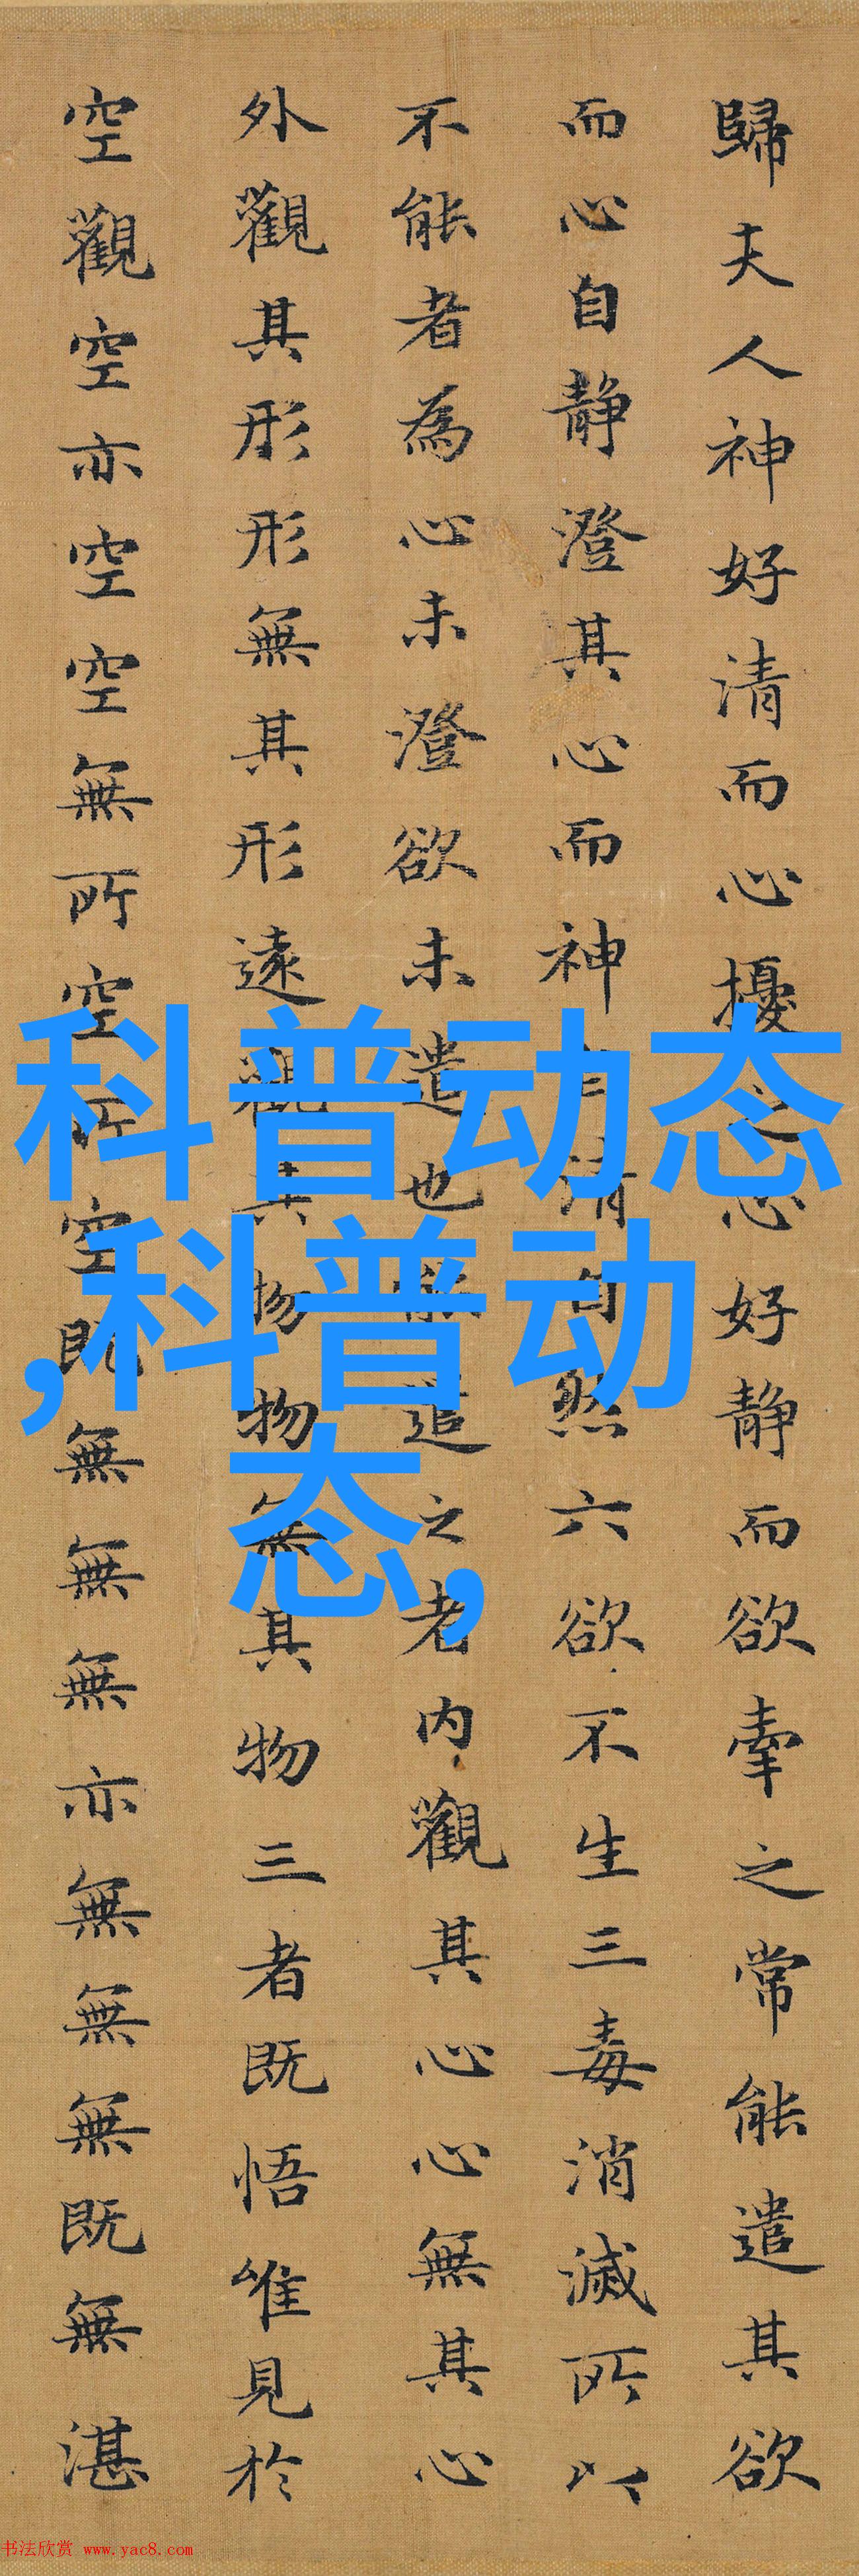 歸夫人神好清而心擾之心好静而欲牽之常能遣其欲
而心自静澄其心而神自清自然六欲不生三毒消滅所以
不能者為心未澄欲未遣也能遣之者内觀其心心無其心
外觀其形形無其形遠觀其物物無其物三者既悟唯見於
空觀空亦空空無所空所空既無無無亦無無無既無湛
科普动态
,科普动
态,
书法欣赏 www.yac8.com